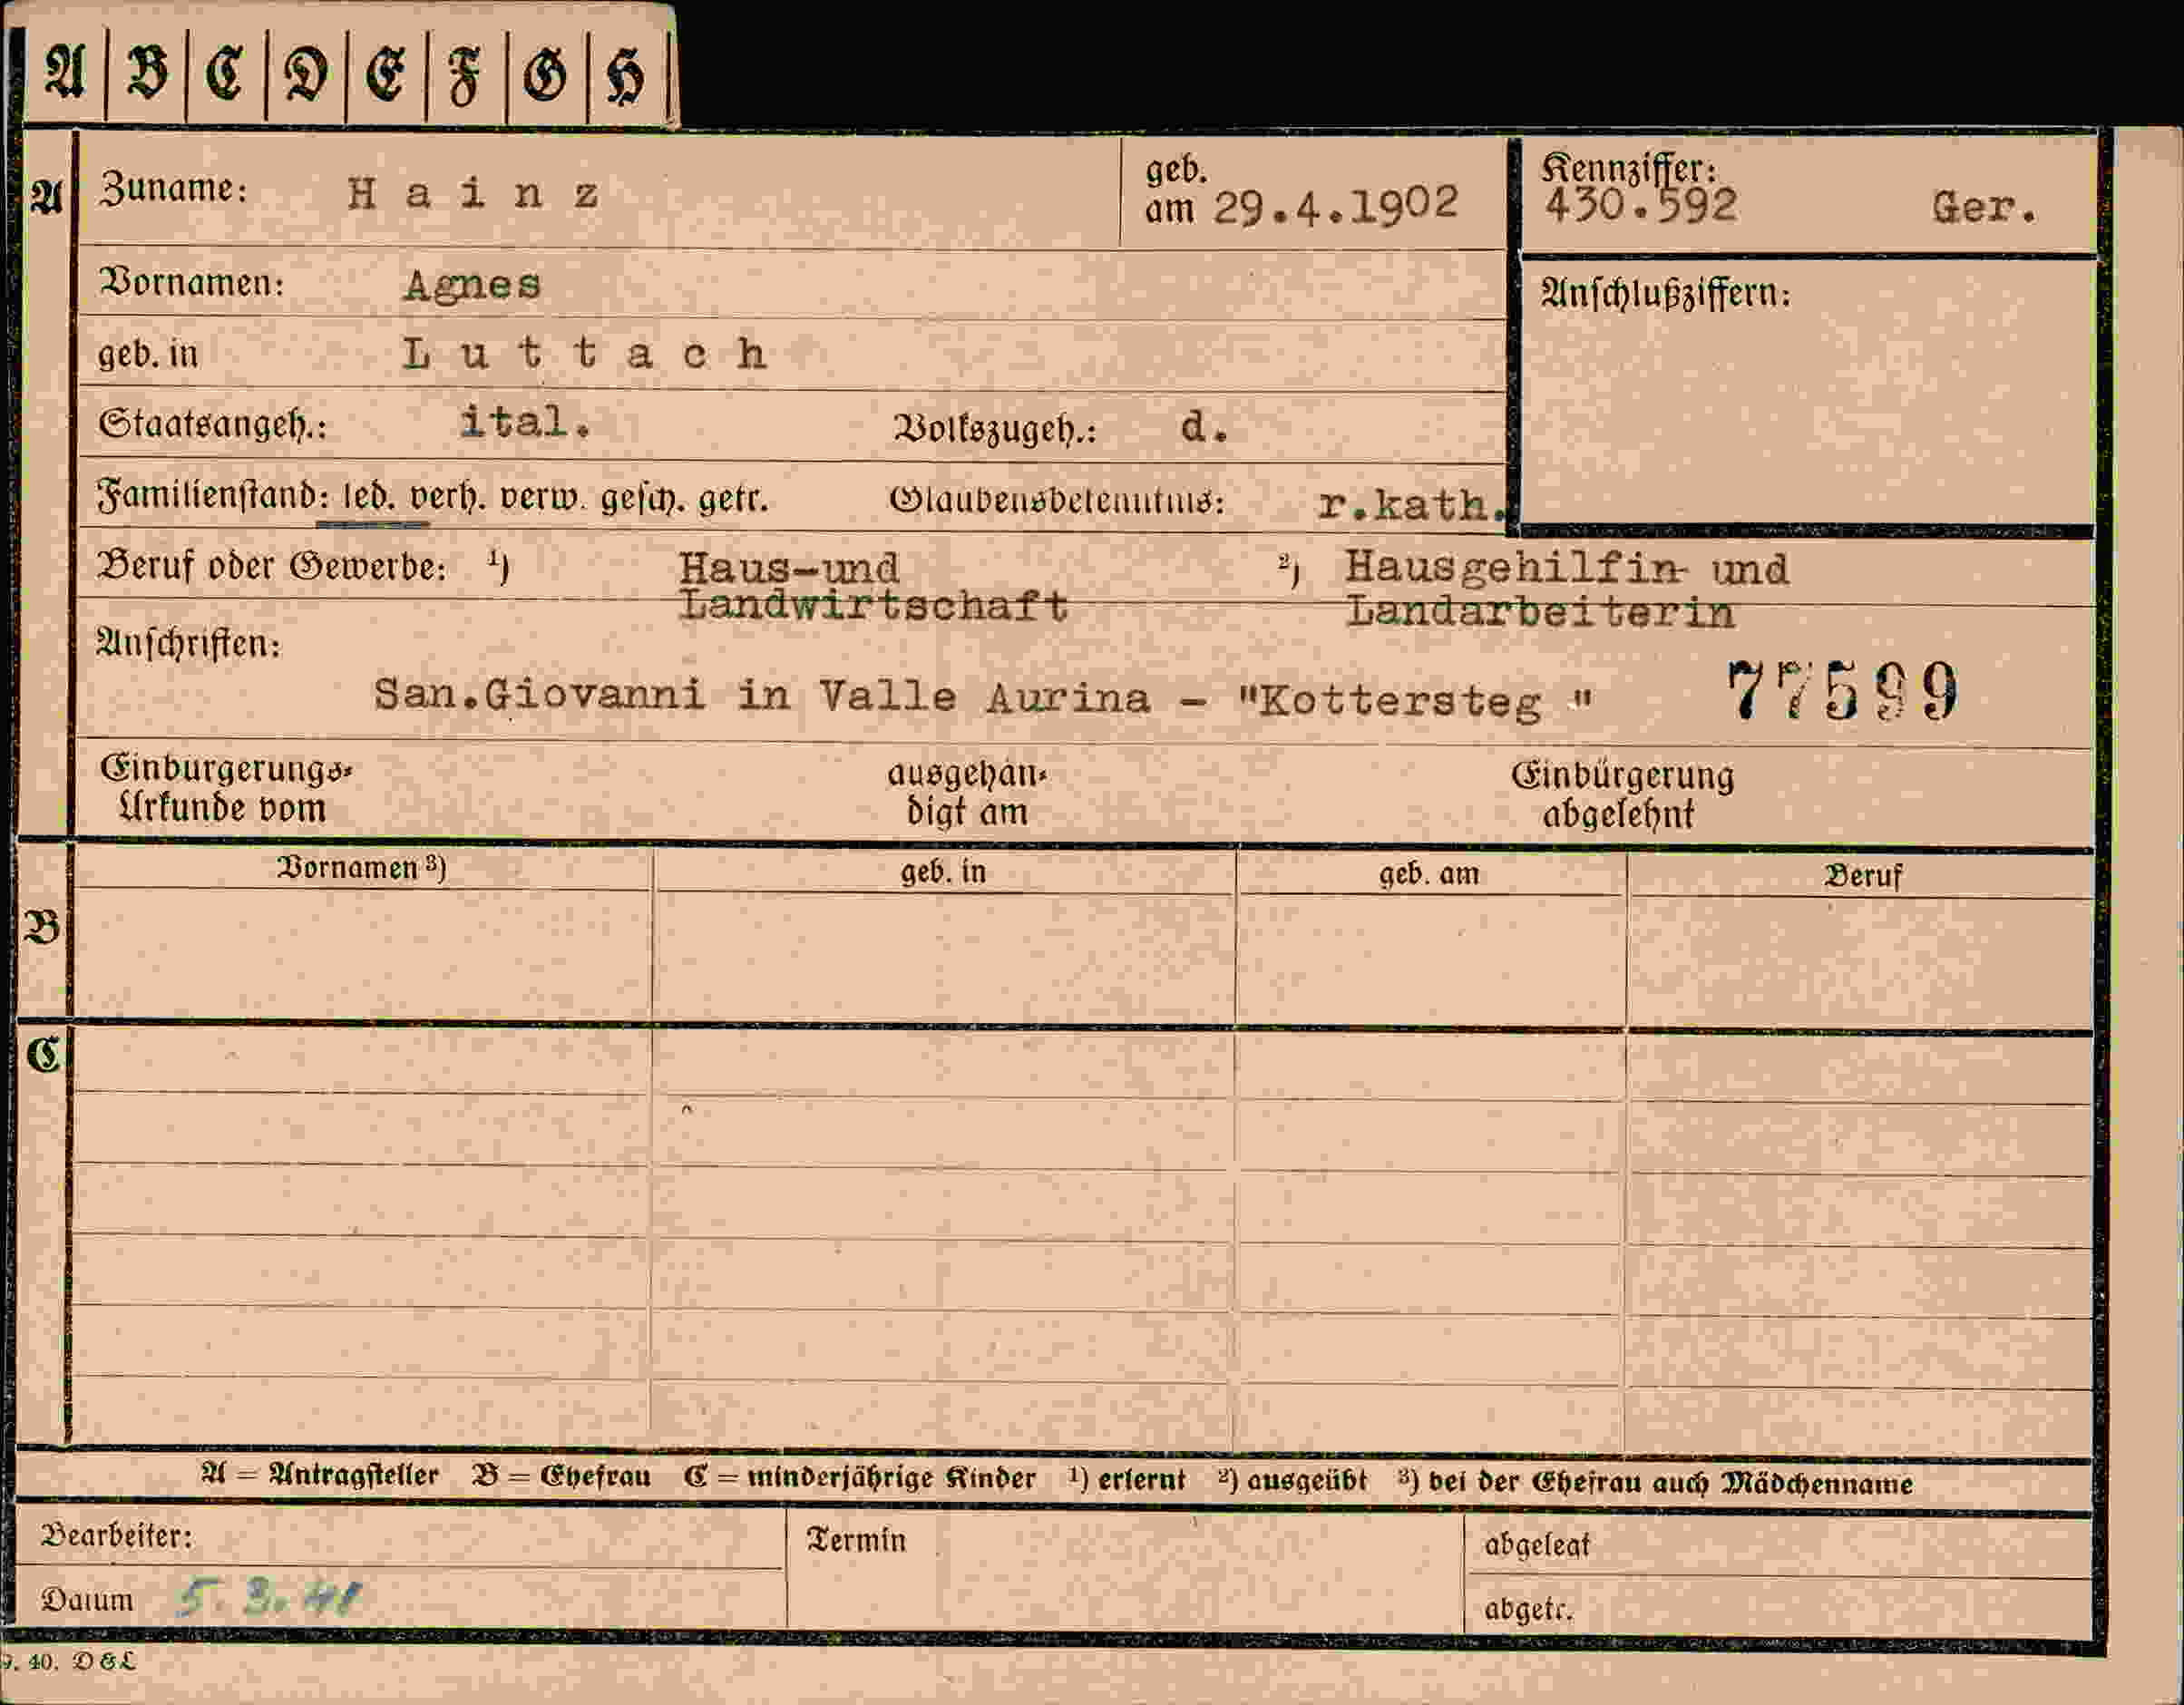 A B C D E F G H
A Zuname: Hainz geb. am 29.4.1902 Kennziffer: 430.592 Ger.
Vornamen: Agnes Anschlußziffern:
geb. in Luttach
Staatsangeh.: ital. Volkszugeh.: d.
Familienstand: led. verh. verw. gesch. getr. Glaubensbekenntnis: r.kath.
Beruf oder Gewerbe: ¹) Haus-und ²) Hausgehilfin und
Landwirtschaft Landarbeiterin
Anschriften:
San.Giovanni in Valle Aurina - "Kottersteg " 77599
Einbürgerungs- ausgehän- Einbürgerung
Urkunde vom digt am abgelehnt
Vornamen ³) geb. in geb. am Beruf
B
C
A = Antragsteller B = Ehefrau C = minderjährige Kinder ¹) erlernt ²) ausgeübt ³) bei der Ehefrau auch Mädchenname
Bearbeiter: Termin abgelegt
Datum 5. 3. 41 abgetr.
9. 40. D & L